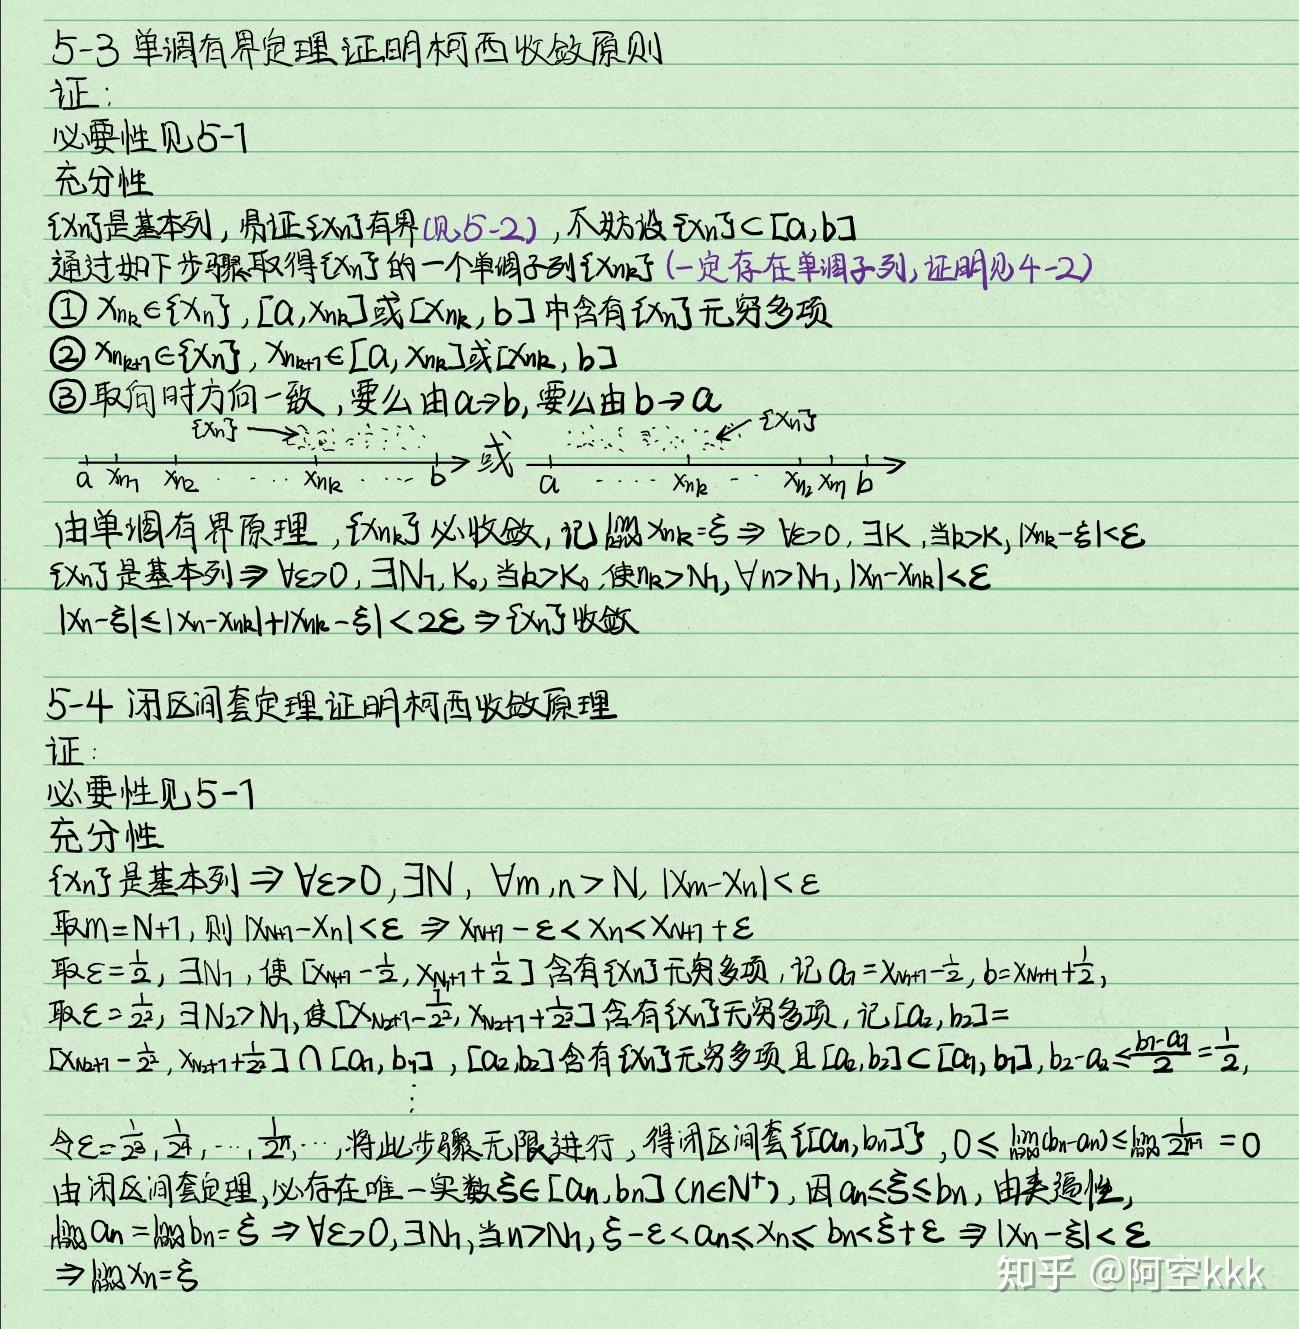 5-3 单调有界定理证明柯西收敛原则
证:
必要性见5-1
充分性
{xn}是基本列,易证{xn}有界(见5-2),不妨设{xn}⊂[a,b]
通过如下步骤取得{xn}的一个单调子列{xnk}(一定存在单调子列,证明见4-2)
① xnk∈{xn},[a,xnk]或[xnk,b]中含有{xn}无穷多项
② xnk+1∈{xn},xnk+1∈[a,xnk]或[xnk,b]
③ 取向时方向一致,要么由a→b,要么由b→a
{xn} {xn}
a xn1 xn2 ····· xnk ···· b 或 a ····· xnk ·· xn2 xn1 b
由单调有界原理,{xnk}必收敛,记lim xnk=ξ⇒ ∀ε>0,∃K,当k>K,|xnk-ξ|<ε
{xn}是基本列⇒∀ε>0,∃N1,K0,当k>K0,使nk>N1,∀n>N1,|xn-xnk|<ε
|xn-ξ|≤|xn-xnk|+|xnk-ξ|<2ε⇒{xn}收敛
5-4 闭区间套定理证明柯西收敛原理
证:
必要性见5-1
充分性
{xn}是基本列⇒∀ε>0,∃N,∀m,n>N,|xm-xn|<ε
取m=N+1,则|xN+1-xn|<ε⇒xN+1-ε<xn<xN+1+ε
取ε=1/2,∃N1,使[xN1+1-1/2,xN1+1+1/2]含有{xn}无穷多项,记a1=xN1+1-1/2,b=xN1+1+1/2,
取ε=1/2²,∃N2>N1,使[xN2+1-1/2²,xN2+1+1/2²]含有{xn}无穷多项,记[a2,b2]=
[xN2+1-1/2²,xN2+1+1/2²]∩[a1,b1],[a2,b2]含有{xn}无穷多项且[a2,b2]⊂[a1,b1],b2-a2≤(b1-a1)/2=1/2,
⋮
令ε=1/2³,1/2⁴,···,1/2ⁿ,···,将此步骤无限进行,得闭区间套{[an,bn]},0≤lim(bn-an)≤lim 1/2ⁿ⁻¹=0
由闭区间套定理,必存在唯一实数ξ∈[an,bn](n∈N⁺),因an≤ξ≤bn,由夹逼性,
lim an=lim bn=ξ⇒∀ε>0,∃N1,当n>N1,ξ-ε<an≤xn≤bn<ξ+ε⇒|xn-ξ|<ε
⇒lim xn=ξ
知乎 @阿空kkk